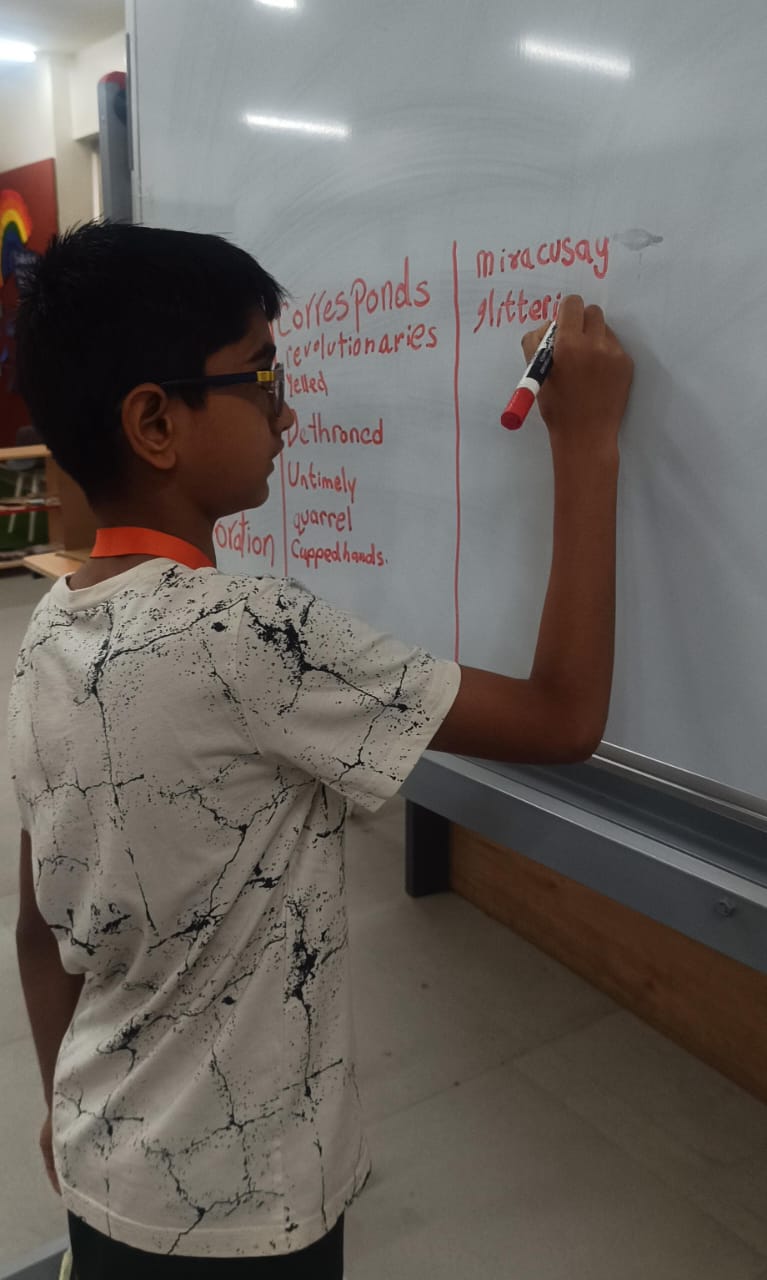 oration
Corresponds
revolutionaries
Yelled
Dethroned
Untimely
quarrel
Cuppedhands.
miracusay
glitteri